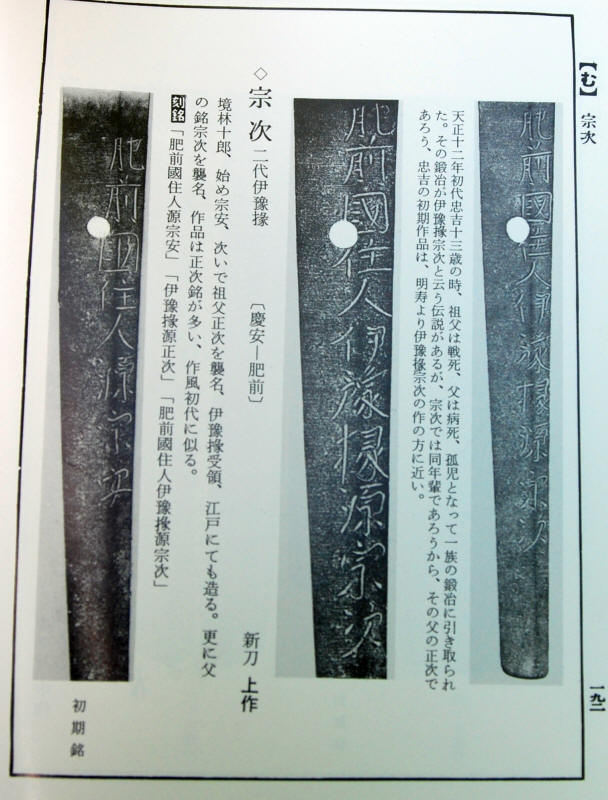 【む】
宗次
一九二
肥前國住人伊豫掾源宗次
天正十二年初代忠吉十三歳の時、祖父は戦死、父は病死、孤児となって一族の鍛冶に引き取られ
た。その鍛冶が伊豫掾宗次と云う伝説があるが、宗次では同年輩であろうから、その父の正次で
あろう、忠吉の初期作品は、明寿より伊豫掾宗次の作の方に近い。
肥前國住人伊豫掾源宗次
◇宗次 二代伊豫掾 〔慶安―肥前〕 新刀 上作
境林十郎、始め宗安、次いで祖父正次を襲名、伊豫掾受領、江戸にても造る。更に父
の銘宗次を襲名、作品は正次銘が多い、作風初代に似る。
刻銘「肥前國住人源宗安」「伊豫掾源正次」「肥前國住人伊豫掾源宗次」
肥前國住人源宗安
初期銘